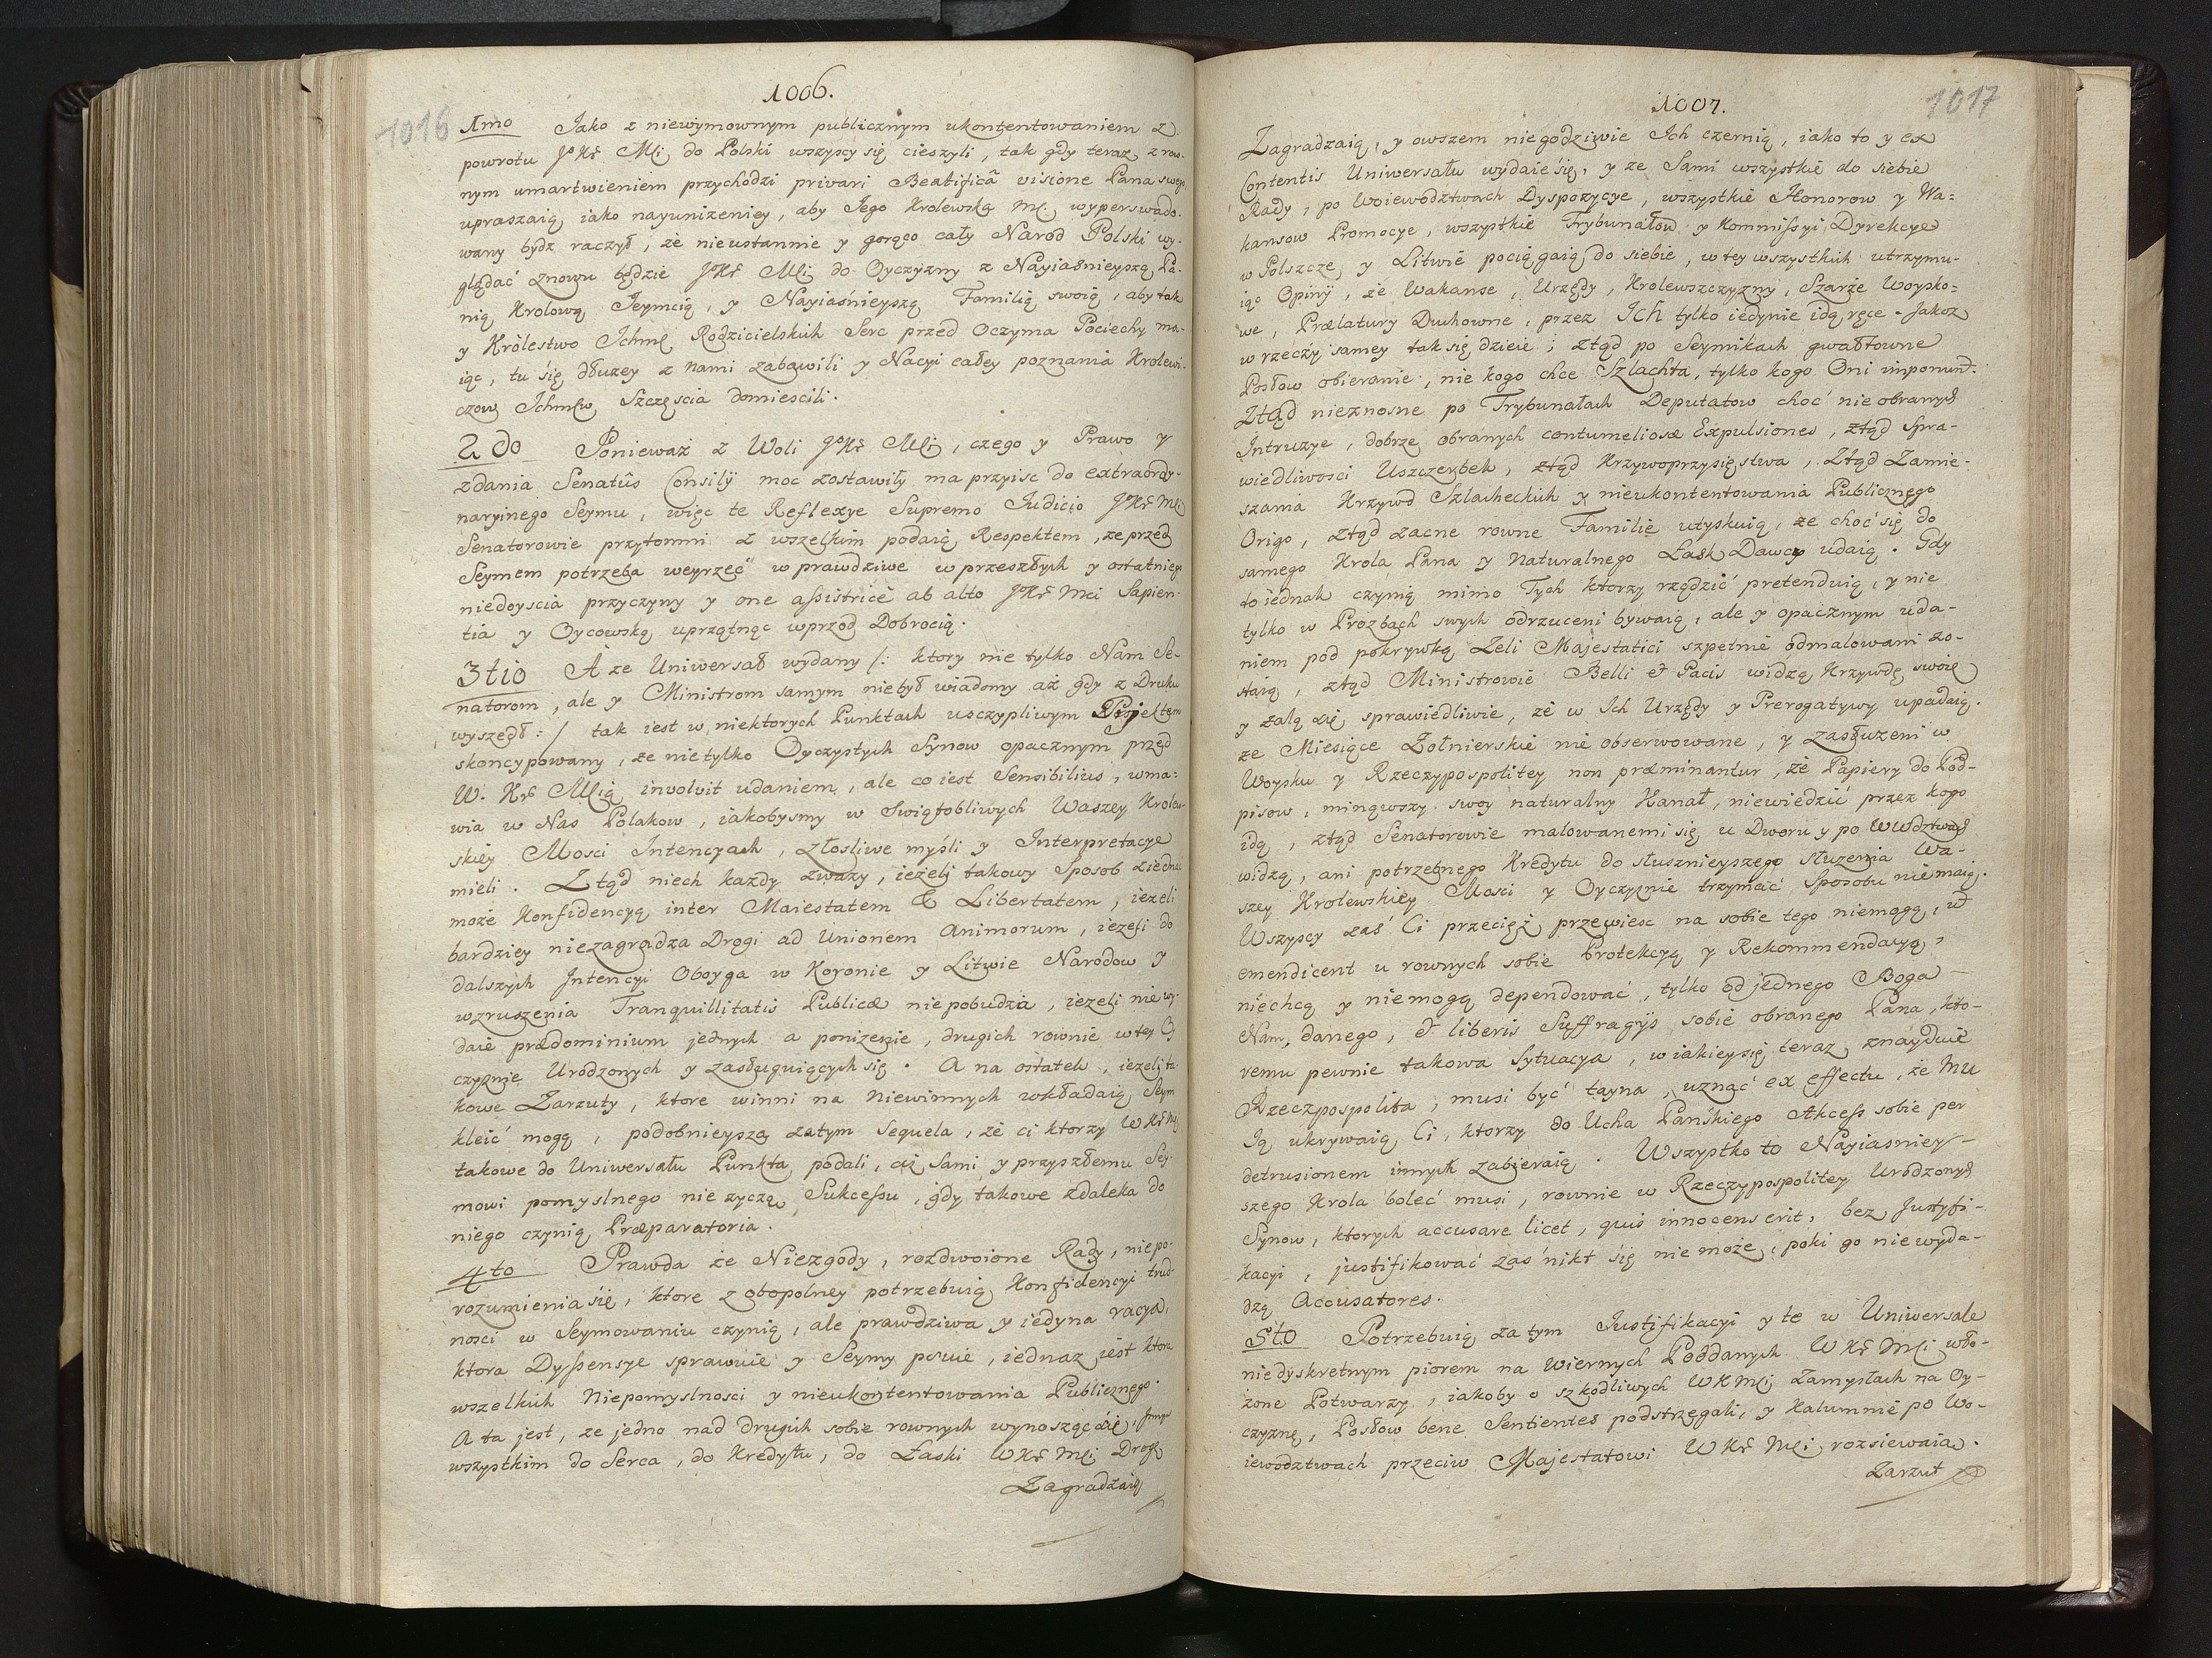 1006.
1016
1mo Jako z niewymownym publicznym ukontentowaniem z
powrotu JKr Mci do Polski wszyscy się cieszyli, tak gdy teraz z row-
nym umartwieniem przychodzi privari Beatificâ visione Pana swego
upraszaią iako nayunizeniey, aby Jego Krolewska Mć. wyperswado-
wany bydz raczył, że nieustannie y gorąco cały Narod Polski wy-
glądać znowu będzie JKr Mci do Oyczyzny z Nayiaśnieyszą Pa-
nią Krolową Jeymcią, y Nayiaśnieyszą Familią swoią, aby tak
y Królestwo Ichmć Rodzicielskich Serc przed Oczyma Pociechy ma-
iąc, tu się dłużey z nami zabawili y Nacyi całey poznania Krolewi-
czow Ichmćw Szczęscia domiescili.
2do Ponieważ z Woli JKr Mci, czego y Prawo y
zdania Senatûs Consilij moc zostawiły ma przyisc do extraordy-
naryinego Seymu, więc te Reflexye Supremo Judicio JKr Mci
Senatorowie przytomni z wszelkim podaią Respektem, ze przed
Seymem potrzeba weyrzeć w prawdziwe w przeszłych y ostatniego
niedoyscia przyczyny y one assistrice ab alto JKr Mci Sapien-
tia y Oycowską uprzątnąc wprzod Dobrocią.
3tio A ze Uniwersał wydany /: ktory nie tylko Nam Se-
natorom, ale y Ministrom samym niebył wiadomy aż gdy z Druku
wyszedł :/ tak iest w niektorych Punktach uszczypliwym Projektem
skoncypowany, ze nietylko Oyczystych Synow opacznym przed
W. Kr Mcią involvit udaniem, ale co iest Sensibilius, wma-
wia w Nas Polakow, iakobysmy w Swiątobliwych Waszey Krolew-
skiey Mosci Intencyach, złosliwe myśli y Interpretacye
mieli. Ztąd niech kazdy zwazy, ieżeli takowy Sposob ziedna
może Konfidencyą inter Maiestatem & Libertatem, iezeli
bardziey niezagradza Drogi ad Unionem Animorum, iezeli do
dalszych Intencyi Oboyga w Koronie y Litwie Narodow y
wzruszenia Tranquillitatis Publicæ niepobudza, iezeli nie wy-
daie prædominium jednych a ponizenie, drugich rownie w tey Oy
czyznie Urodzonych y zasługuiących się. A na ostatek, iezeli ta-
kowe Zarzuty, ktore winni na Niewinnych wkładaią, Seym
kleić mogą, podobnieysza zatym Sequela, ze ci ktorzy WKr Mci
takowe do Uniwersału Punkta podali, ciż sami y przyszłemu Sey-
mowi pomyslnego nie zyczą Sukcessu, gdy takowe zdaleka do
niego czynią Præparatoria.
4to Prawda że Niezgody, rozdwoione Rady, niepo-
rozumienia się, ktore z obopolney potrzebuią Konfidencyi trud-
nosci w Seymowaniu czynią, ale prawdziwa y iedyna racya,
ktora Dyssensye sprawuie y Seymy psuie, iednaz iest ktora
wszelkich Niepomyslnosci y nieukontentowania Publicznego.
A ta jest, ze jedno nad drugich sobie rownych wynosząc się,
wszystkim do Serca, do Kredytu, do Łaski WKr Mci Drogę
Zagradzaią
1007.
1017
Zagradzaią, y owszem niegodziwie Ich czernią, iako to y ex
Contentis Uniwersału wydaie się, y ze Sami wszystkie do siebie
Rady, po Woiewodztwach Dyspozycye, wszystkie Honorow y Wa-
kansow Promocye, wszystkie Trybunałow y Kommissyi Dyrekcye
w Polszcze y Litwie pociągaią do siebie, w tey wszystkich utrzymu-
iąc Opinij, że Wakanse, Urzędy, Krolewszczyzny, Szarże Woysko-
we, Prælatury Duchowne, przez Ich tylko iedynie idą ręce. Jakoz
w rzeczy samey tak się dzieie; ztąd po Seymikach gwałtowne
Posłow obieranie, nie kogo chce Szlachta, tylko kogo Oni imponunt.
Ztąd nieznosne po Trybunałach Deputatow choć nie obranych
Intruzye, dobrze obranych contumeliosæ Expulsiones, ztąd Spra-
wiedliwosci Uszczerbek, ztąd Krzywoprzysięstwa, Ztąd Zamie-
szania Krzywd Szlacheckich y nieukontentowania Publicznego
Origo, ztąd zacne rowne Familie utyskuią, ze choć się do
samego Krola Pana y Naturalnego Łask Dawcy udaią. Gdy
to iednak czynią mimo Tych ktorzy rządzić pretenduią, y nie
tylko w Prozbach swych odrzuceni bywaią, ale y opacznym uda-
niem pod pokrywką Zeli Majestatici szpetnie odmalowani zo-
staią, ztąd Ministrowie Belli & Pacis widzą Krzywdę swoię
y zalą się sprawiedliwie, ze w Ich Urzędy y Prerogatywy upadaią.
ze Miesiące Zołnierskie nie obserwowane, y zasłuzeni w
Woysku y Rzeczypospolitey non præminantur, że Papiery do Pod-
pisow, minąwszy swoy naturalny Kanał, niewiedzić przez kogo
idą, ztąd Senatorowie malowanemi się u Dworu y po Wwdztwach
widzą, ani potrzebnego Kredytu do słusznieyszego słuzenia Wa-
szey Krolewskiey Mosci y Oyczyznie trzymaić Sposobu niemaią.
Wszyscy zaś Ci przecięż przewiesc na sobie tego niemogą, ut
emendicent u rownych sobie Protekcyą y Rekommendacyą,
niechcą y niemogą dependować, tylko od jednego Boga
Nam, danego, & liberis Suffragijs sobie obranego Pana, kto-
remu pewnie takowa Sytuacya, w iakiey się teraz znayduie
Rzeczpospolita, musi być tayna, uznąć ex effectu, że Mu
Ią ukrywaią Ci, ktorzy do Ucha Pańskiego Akcess sobie per
detrusionem innych zabieraią. Wszystko to Nayiasniey-
szego Krola boleć musi, rownie w Rzeczypospolitey Urodzonych
Synow, ktorych accusare licet, quis innocens erit, bez Justyfi-
kacyi, justifikować zaś nikt się nie może, poki go nie wyda-
dzą Accusatores.
5to Potrzebuią zatym Justifikacyi y te w Uniwersale
niedyskretnym piorem na Wiernych Poddanych WKr Mci wło-
żone Potwarzy, iakoby o szkodliwych WK Mci Zamysłach na Oy-
czyznę, Posłow bene Sentientes podstrzegali, y Kalumnie po Wo-
iewodztwach przeciw Majestatowi WKr Mci rozsiewaia.
Zarzut